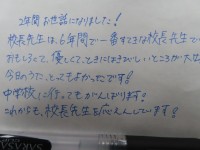 2年間お世話になりました!
校長先生は、6年間で一番すてきな校長先生で
おもしろくて、優しくて、ときにはきびしいところが大
今日のうた、とってもよかったです!
中学校に行ってもがんばります!
これからも、校長先生を応えんしています!
SARASA